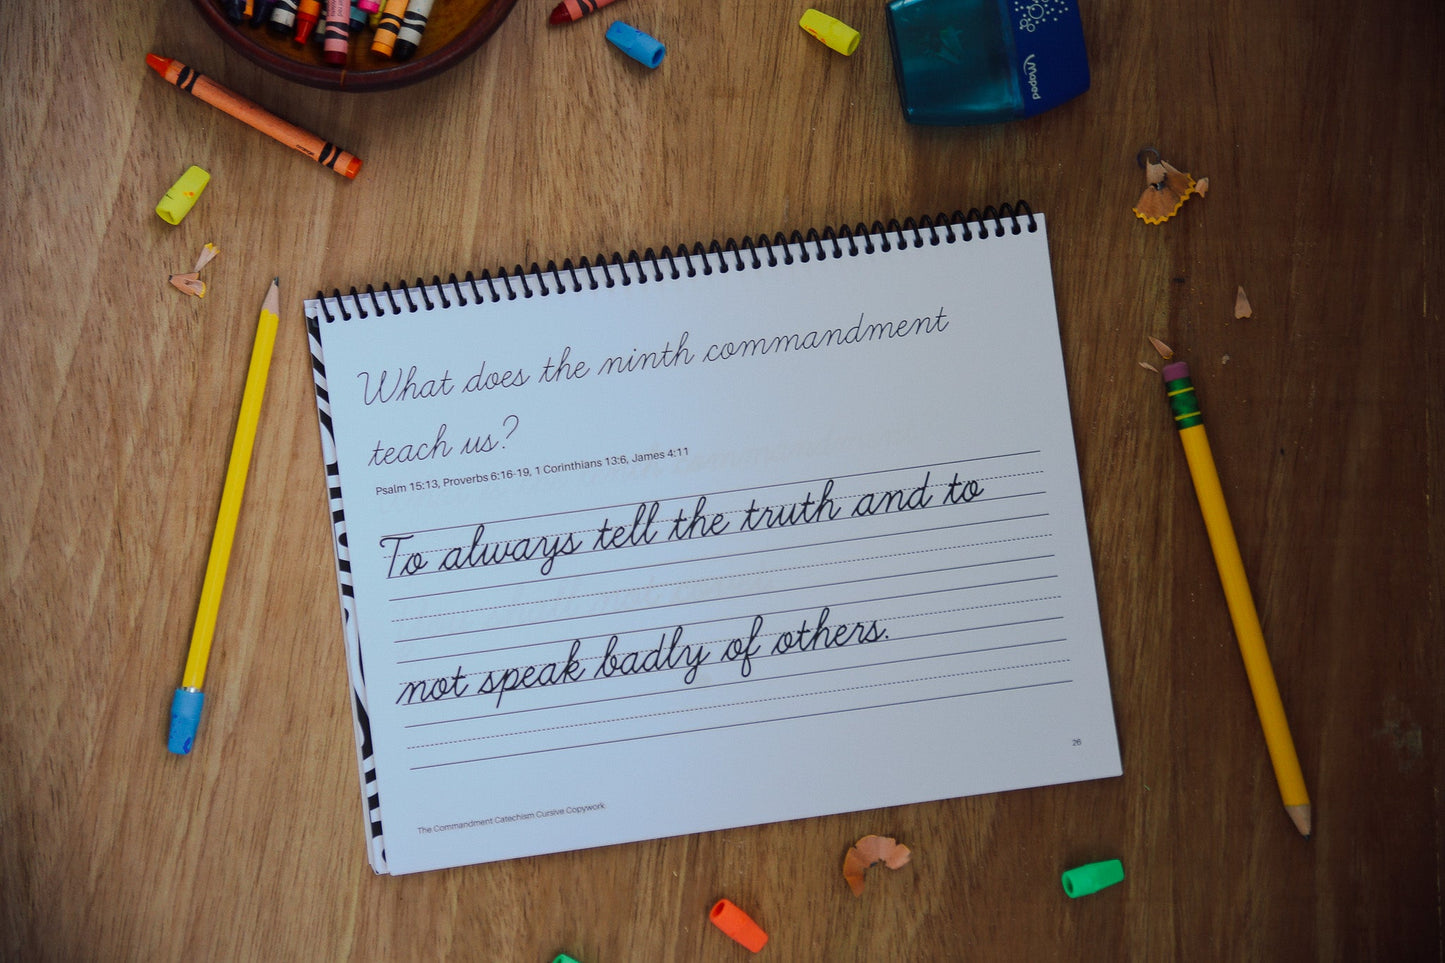 Maped
orange
What does the ninth commandment
teach us?
Psalm 15:13, Proverbs 6:16-19, 1 Corinthians 13:6, James 4:11
To always tell the truth and to
not speak badly of others.
26
The Commandment Catechism Cursive Copywork